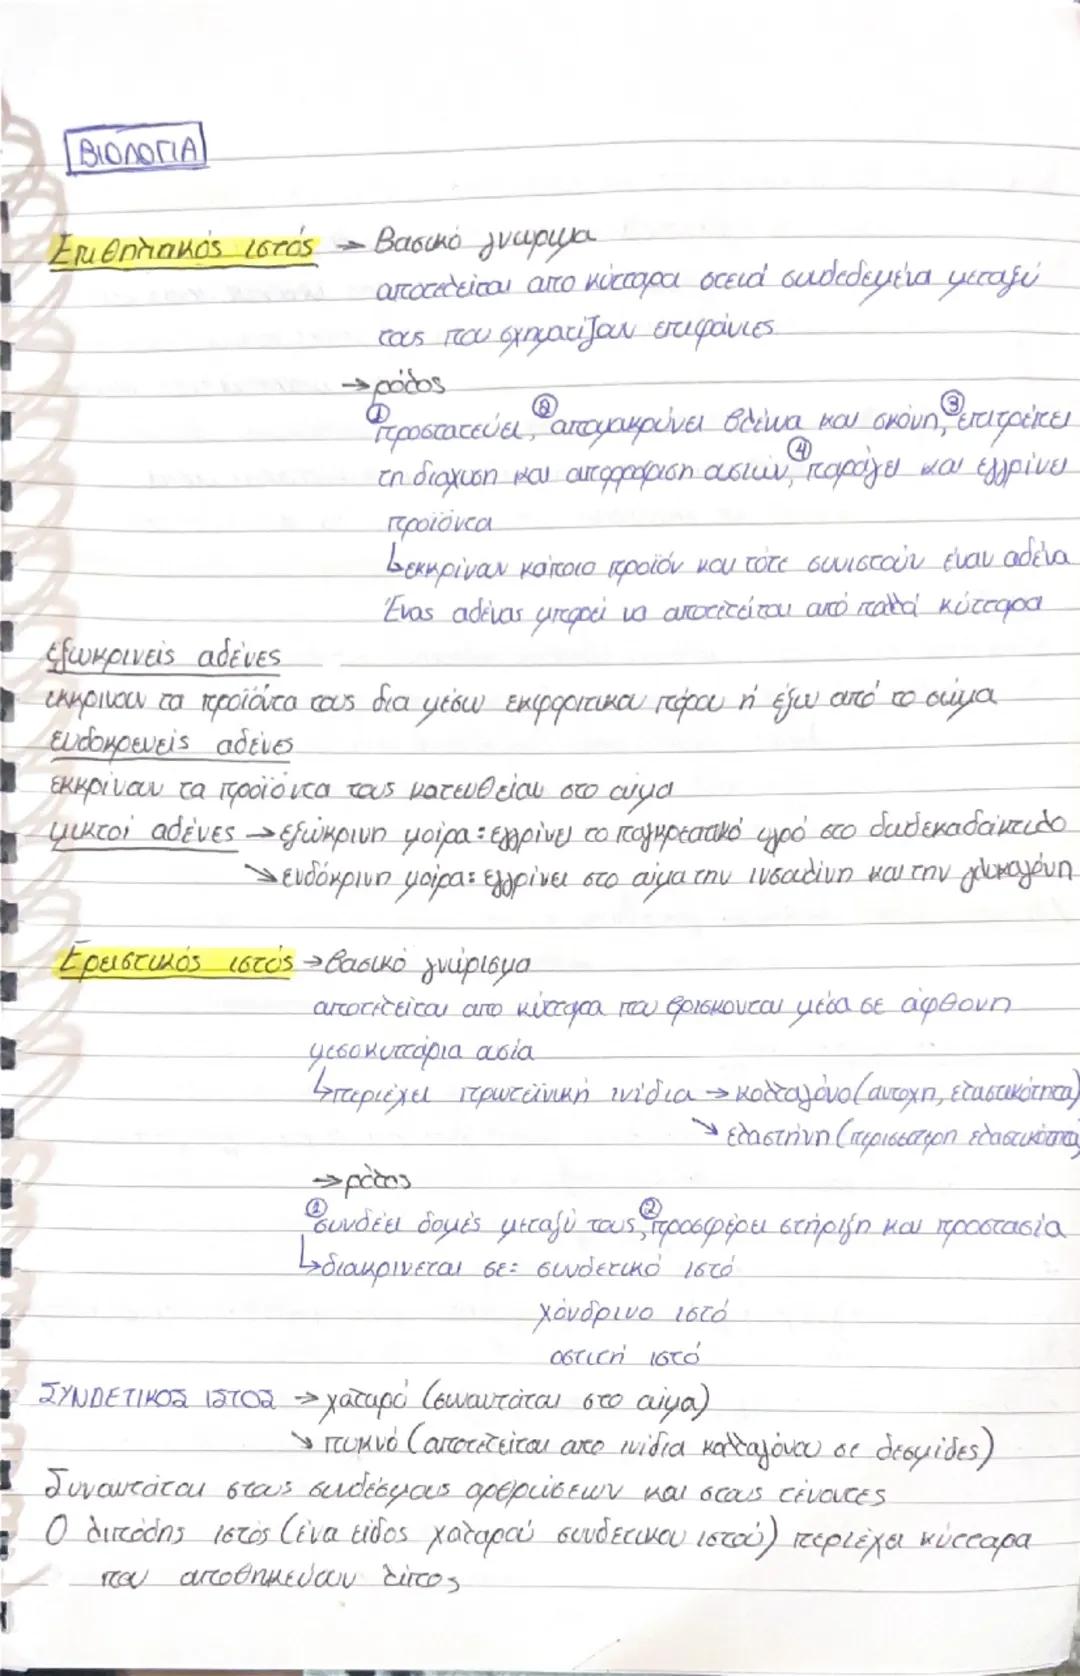 ΒΙΟΛΟΓΙΑ
Επιθηλιακός ιστός → Βασικό γνώρισμα
αποτελείται απο κύτταρα στενά συνδεδεμένα μεταξύ
τους που σχηματίζουν επιφάνιες
→ ρόλος
① προστατεύει, ② απομακρύνει βλέννα και σκόνη, ③ επιτρέπει
τη διάχυση και απορρόφηση ουσιών, ④ παράγει και εγγρίνει
προϊόντα
↳ εκκρίνουν κάποιο προϊόν και τότε συνιστούν έναν αδένα
Ένας αδένας μπορεί να αποτελείται από πολλά κύτταρα
εξωκρινείς αδένες
εκκρινουν τα προϊόντα τους δια μέσω εκφορητικού πόρου ή έξω από το σώμα
ενδοκρενείς αδένες
εκκρίνουν τα προϊόντα τους κατευθείαν στο αιμα
μικτοί αδένες → εξώκρινη μοίρα: εγγρίνει το παγκρεατικό υγρό στο δωδεκαδάκτυλο
↘ ενδόκρινη μοίρα: εγγρίνει στο αίμα την ινσουλίνη και την γλυκαγόνη
Ερειστικός ιστός → βασικό γνώρισμα
αποτελείται απο κύτταρα που βρίσκονται μέσα σε άφθονη
μεσοκυττάρια ουσία
↳ περιέχει πρωτεϊνική ινίδια → κολλαγόνο (αντοχη, ελαστικότητα)
↘ ελαστήνη (περισσοτερη ελαστικότητα)
→ ρόλος
① συνδέει δομές μεταξύ τους, ② προσφέρει στήριξη και προστασία
↳ διακρινεται σε: συνδετικό ιστό
χόνδρινο ιστό
οστιτή ιστό
ΣΥΝΔΕΤΙΚΟΣ ΙΣΤΟΣ → χαλαρό (συναντάται στο αίμα)
↘ πυκνό (αποτελείται απο ινίδια κολλαγόνου σε δεσμίδες)
Συναντάται στους συνδέσμους αρθρώσεων και στους τένοντες
Ο λιπώδης ιστός (ένα είδος χαλαρού συνδετικου ιστού) περιέχει κύτταρα
που αποθηκεύουν λίπος